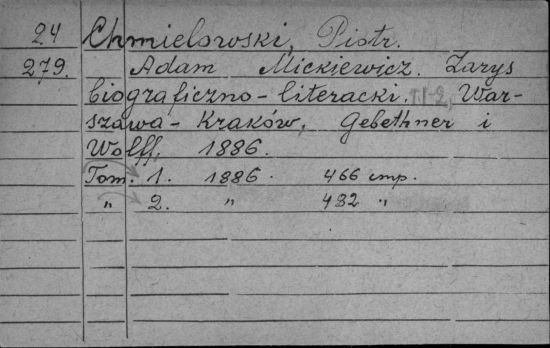 24 Chmielowski, Piotr.
279. Adam Mickiewicz. Zarys
biograficzno-literacki. T.1-2, War-
szawa-Kraków, Gebethner i
Wolff, 1886.
Tom. 1. 1886. 466 стр.
" 2. " 482 "